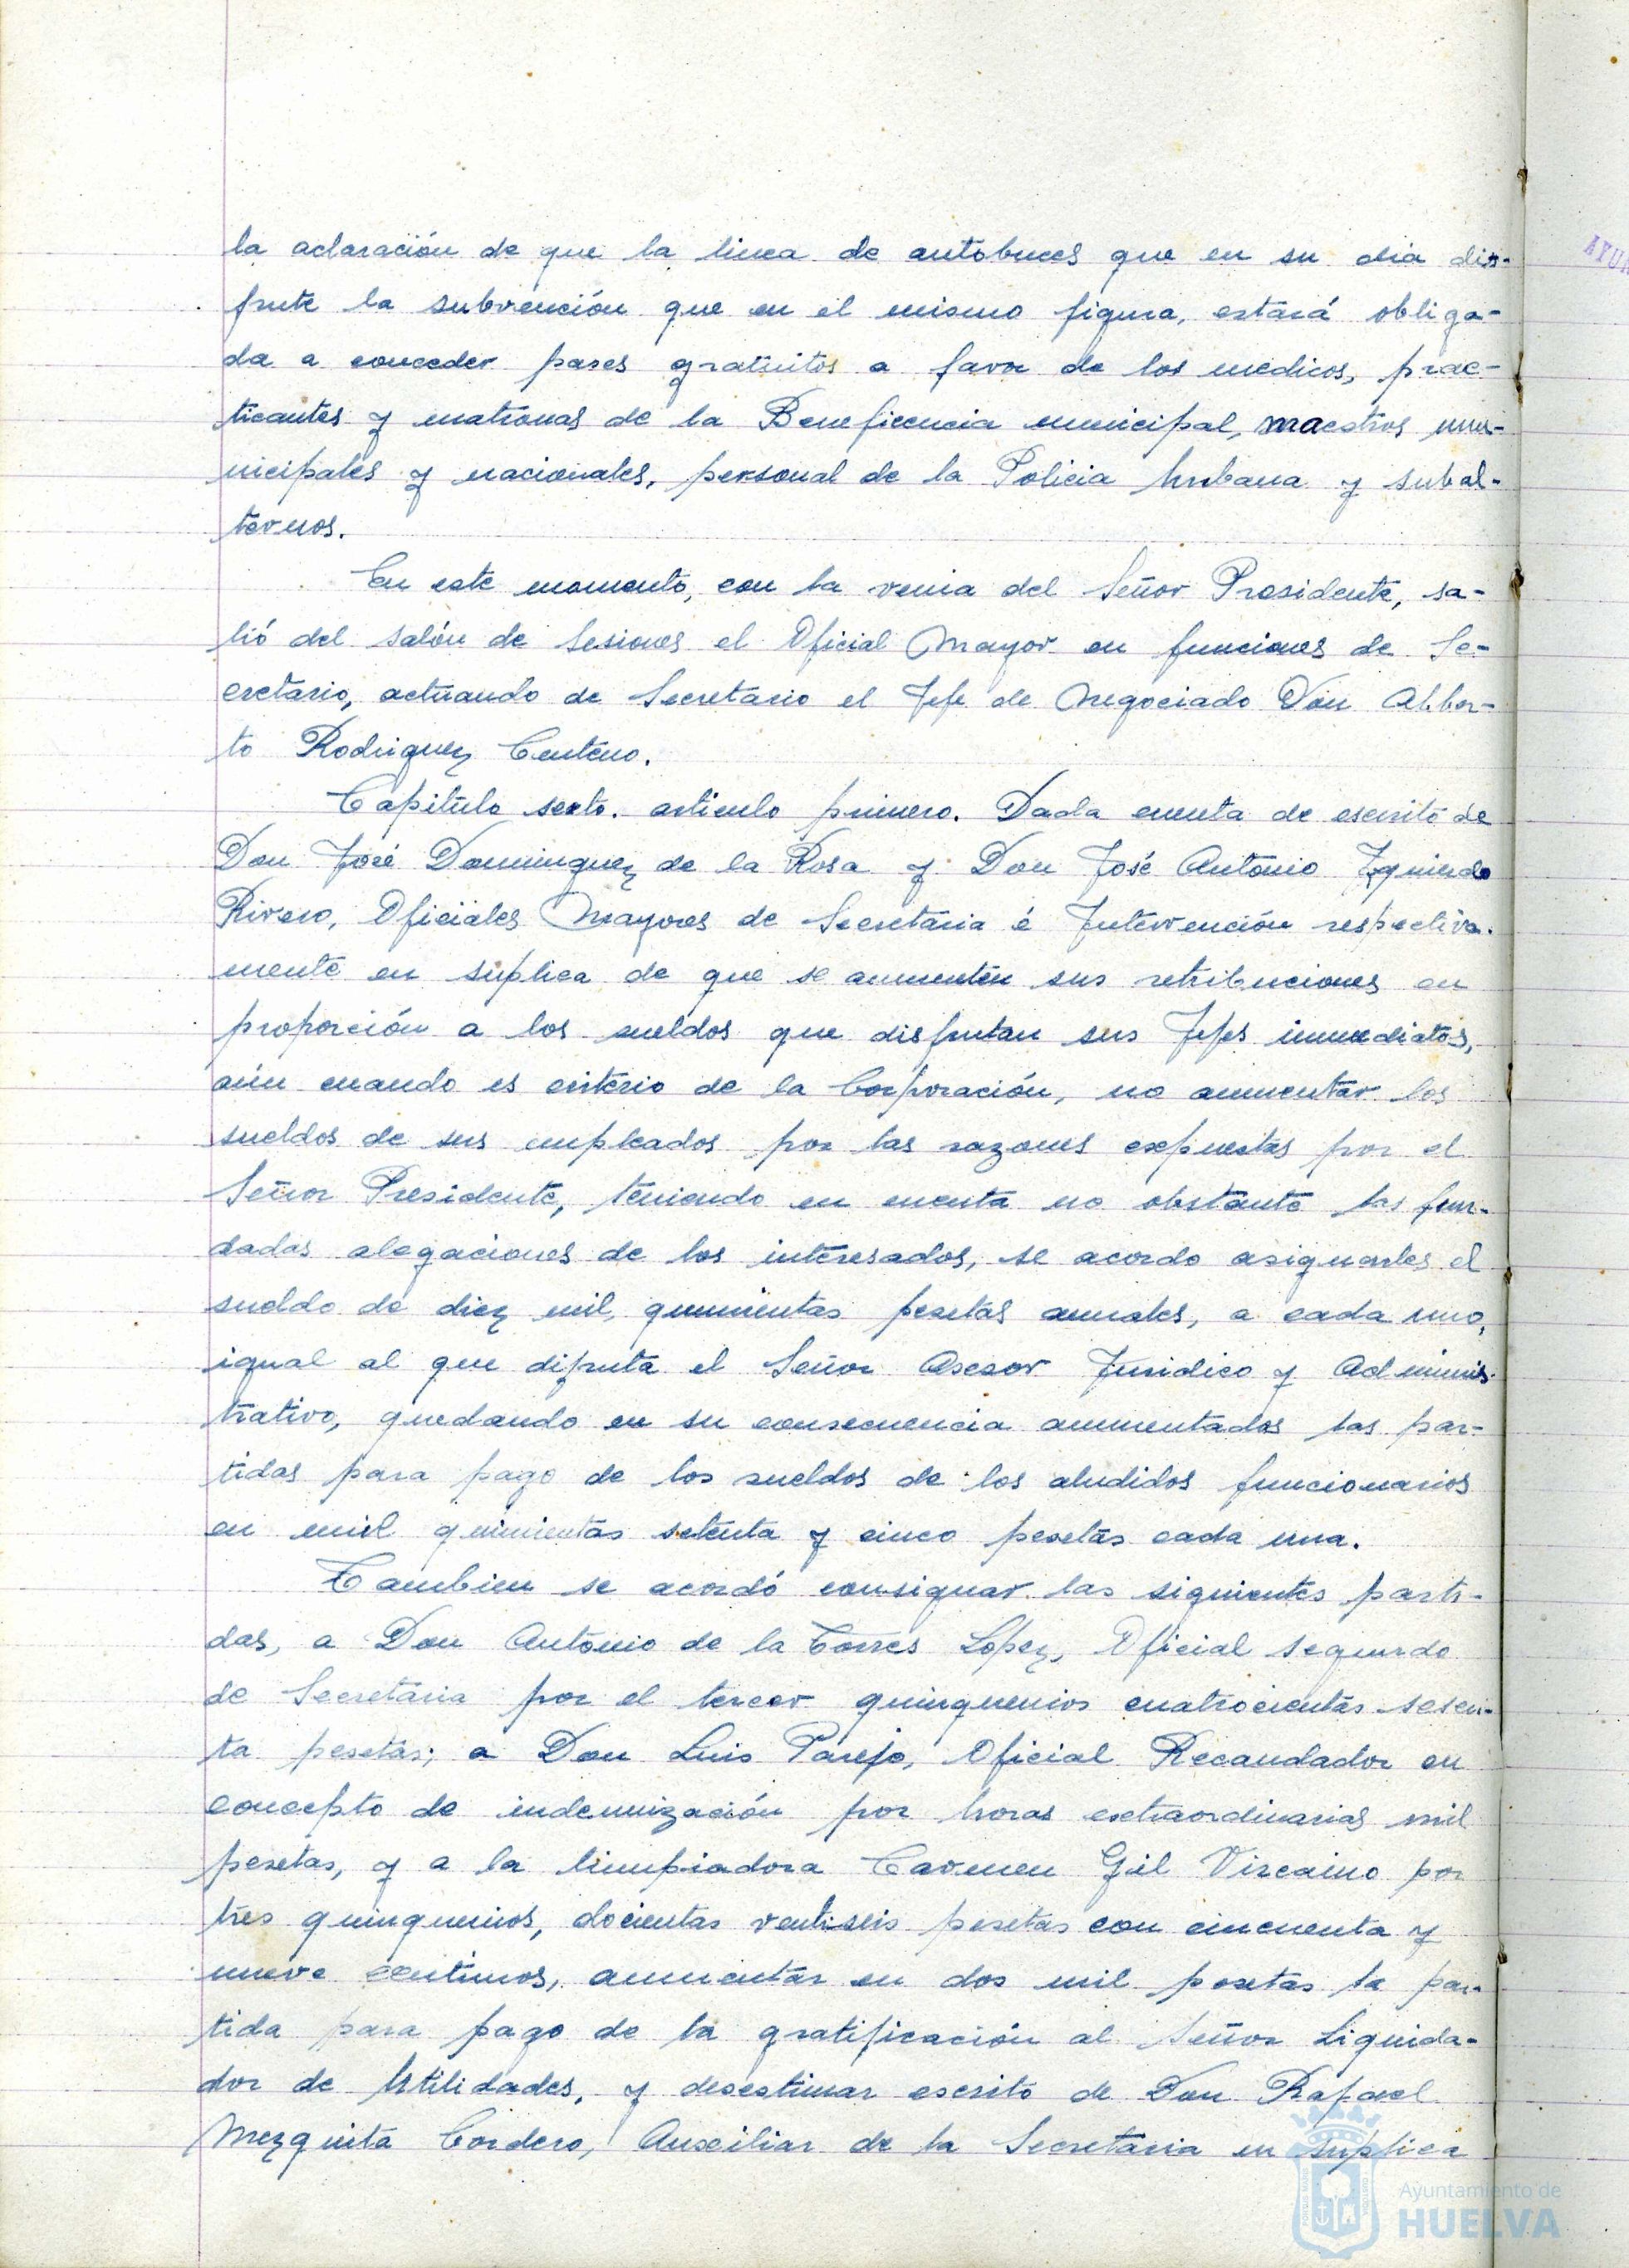 la aclaración de que la linea de autobuces que en su dia dis-
frute la subvención que en el mismo figura, estará obliga-
da a conceder pases gratuitos a favor de los medicos, prac-
ticantes y matronas de la Beneficencia municipal, maestros mu-
nicipales y nacionales, personal de la Policia Urbana y subal-
ternos.
En este momento, con la venia del Señor Presidente, sa-
lió del salón de Sesiones el Oficial Mayor en funciones de Se-
cretario, actuando de Secretario el Jefe de Negociado Don Alber-
to Rodriguez Centeno.
Capitulo sexto. articulo primero. Dada cuenta de escrito de
Don José Dominguez de la Rosa y Don José Antonio Izquierdo
Rivero, Oficiales Mayores de Secretaria é Intervención respectiva-
mente en súplica de que se aumenten sus retribuciones en
proporción a los sueldos que disfrutan sus Jefes inmediatos,
aún cuando es criterio de la Corporación, no aumentar los
sueldos de sus empleados por las razones expuestas por el
Señor Presidente, teniendo en cuenta no obstante las fun-
dadas alegaciones de los interesados, se acordo asignarles el
sueldo de diez mil, quinientas pesetas anuales, a cada uno,
igual al que difruta el Señor Asesor Juridico y Adminis-
trativo, quedando en su consecuencia aumentados las par-
tidas para pago de los sueldos de los aludidos funcionarios
en mil quinientas setenta y cinco pesetas cada una.
Tambien se acordó consignar las siguientes parti-
das, a Don Antonio de la Torres Lopez, Oficial segundo
de Secretaria por el tercer quinquenios cuatrocientas sesen-
ta pesetas; a Don Luis Parejo, Oficial Recaudador en
concepto de indemnización por horas extraordinarias mil
pesetas, y a la limpiadora Carmen Gil Vizcaino por
tres quinquenios, docientas ventiseis pesetas con cincuenta y
nueve centimos, aumentar en dos mil pesetas la par-
tida para pago de la gratificación al Señor Liquida-
dor de Utilidades, y desestimar escrito de Don Rafael
Mezquita Cordero, Auxiliar de la Secretaria en súplica
Ayuntamiento de
HUELVA